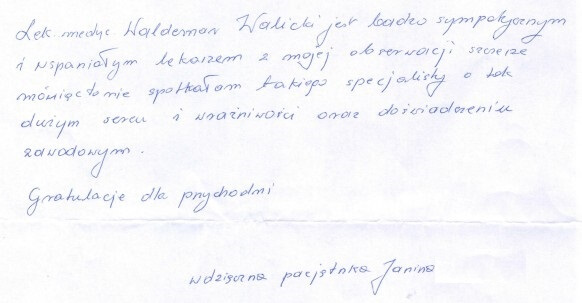 Lek. medyc Waldemar Walicki jest badzo sympatycznym
i wspaniałym lekarzem z mojej obserwacji szczerze
mówiąc to nie spotkałam takiego specjalisty o tak
dużym sercu i wrażliwości oraz doświadczeniu
zawodowym.
Gratulacje dla przychodni
wdzięczna pacjętnka Janina